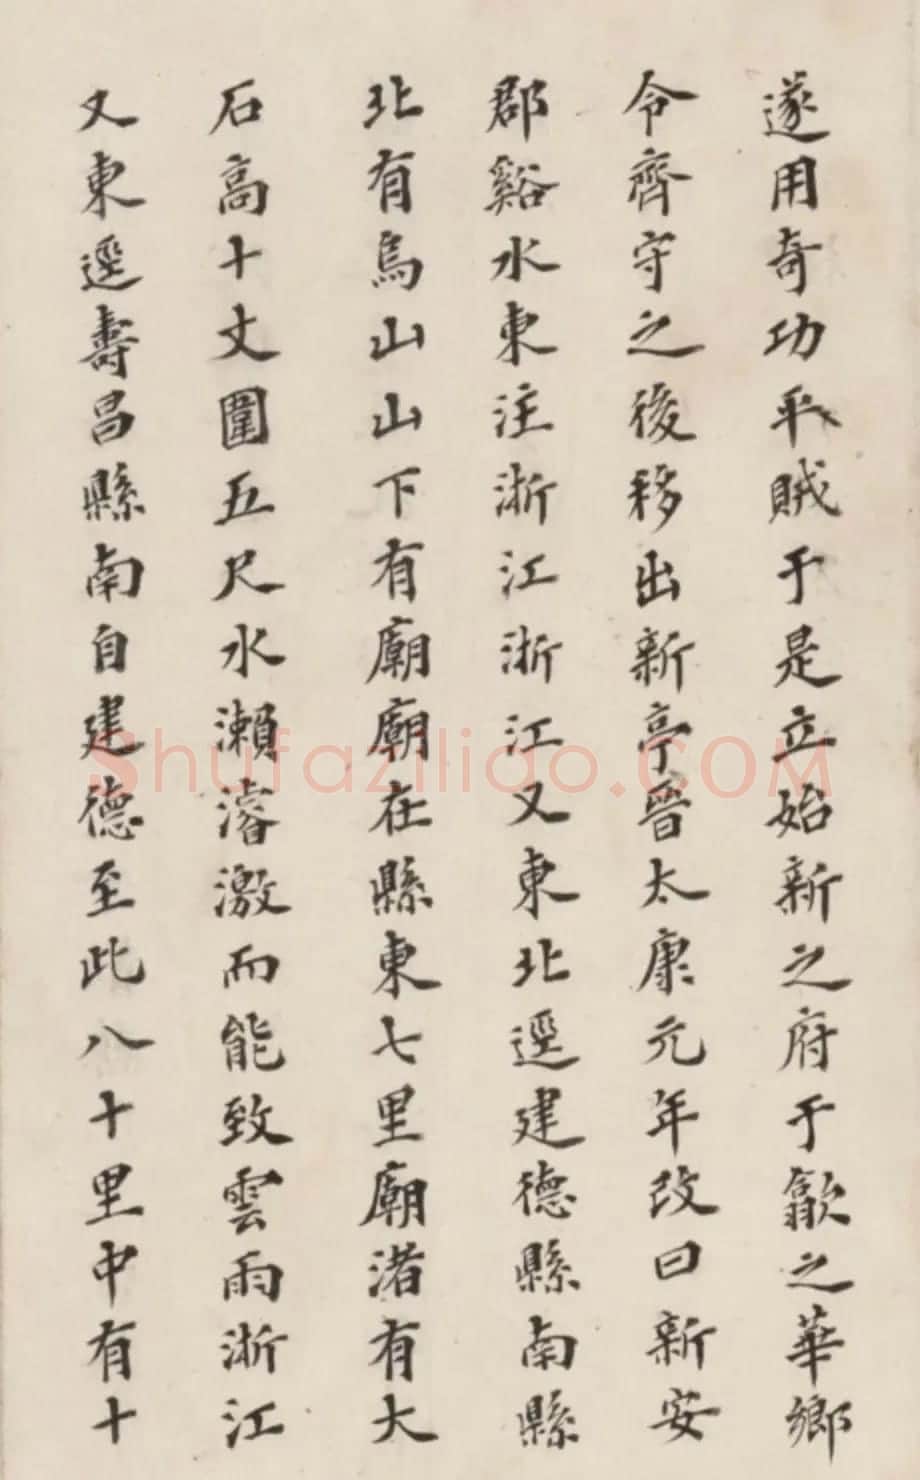 遂用奇功平賊于是立始新之府于歙之華鄉
令齊守之後移出新亭晉太康元年改曰新安
郡谿水東注浙江浙江又東北逕建德縣南縣
北有烏山山下有廟廟在縣東七里廟渚有大
石高十丈圍五尺水瀨濬激而能致雲雨浙江
又東逕壽昌縣南自建德至此八十里中有十
Shufazilidao.COM